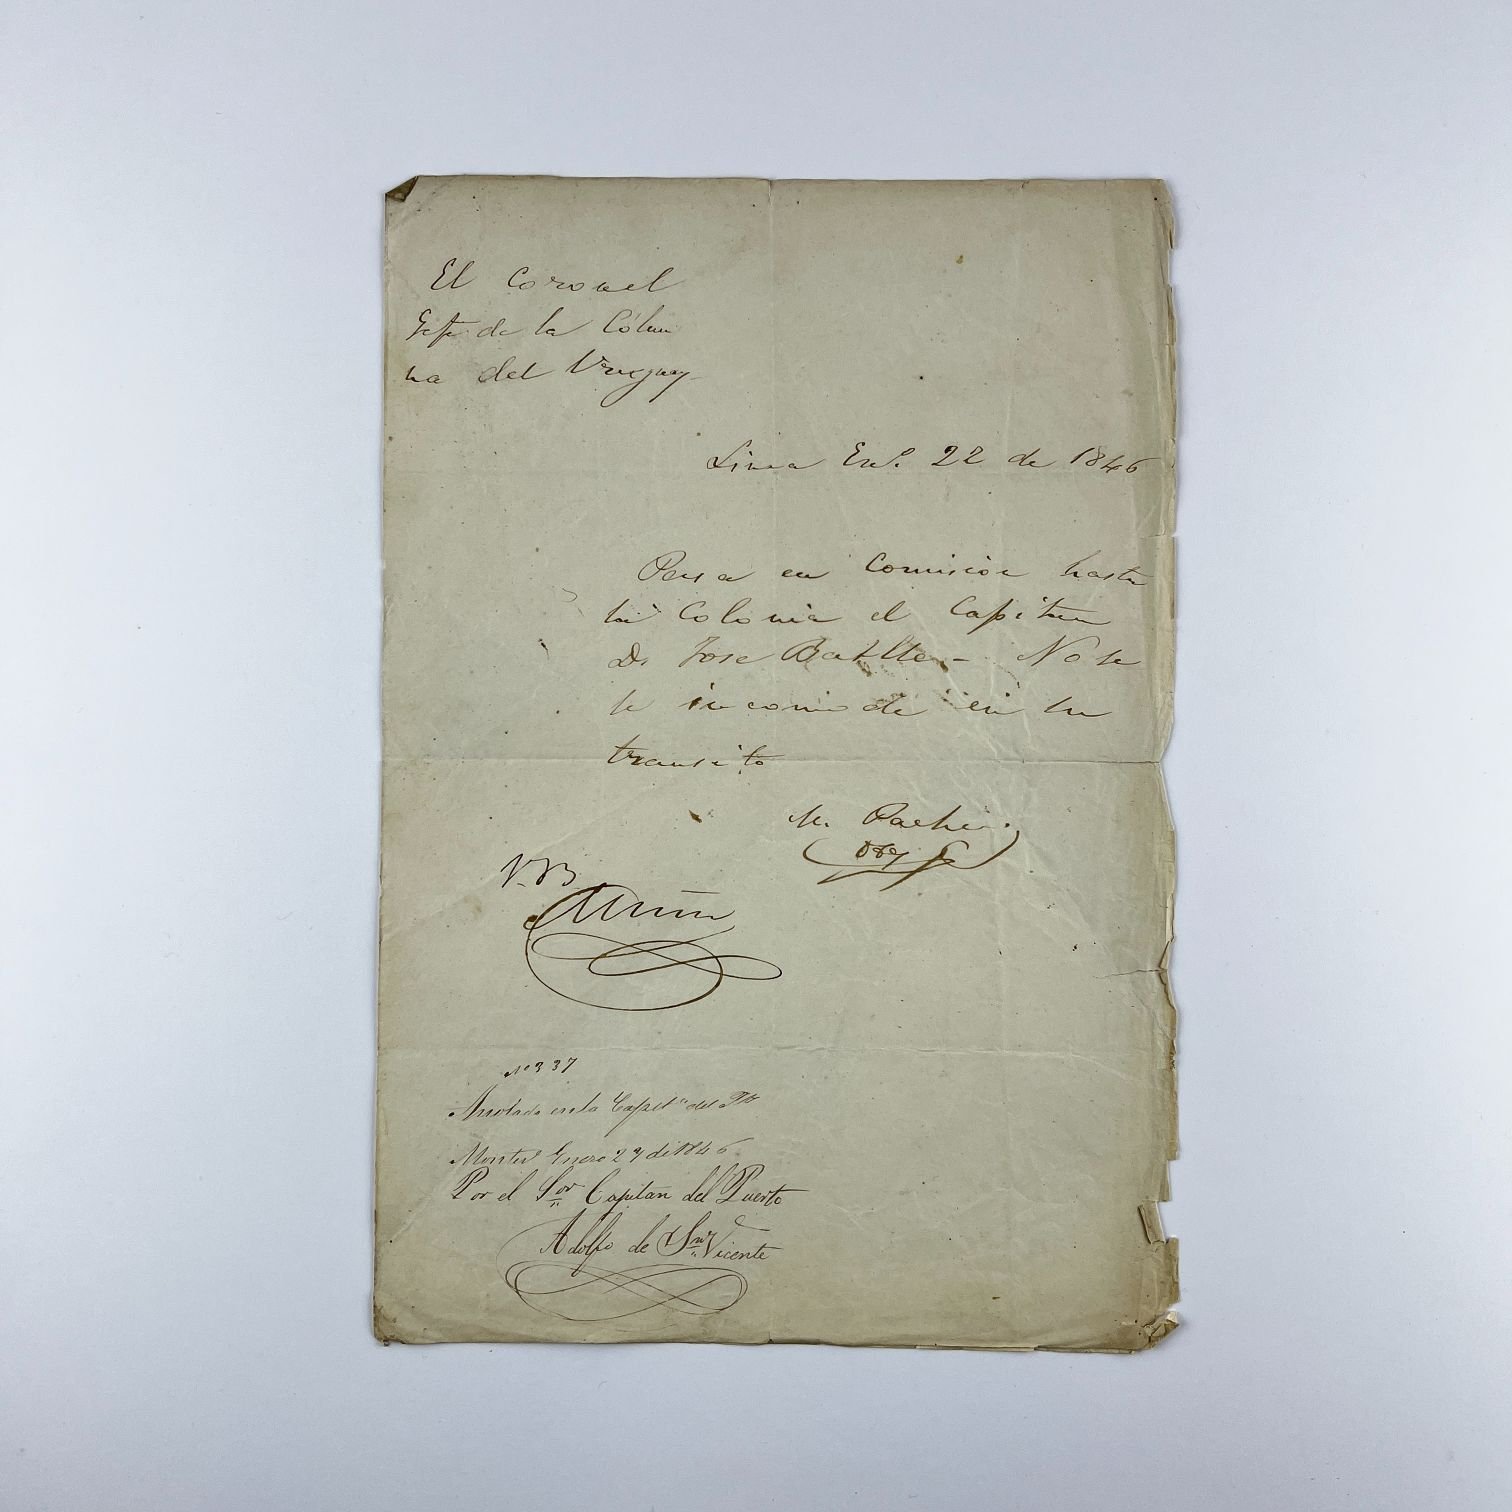 El Coronel
Gefe de la Colum
na del Uruguay
Linea En.º 22 de 1846
Pasa en Comision hasta
la Colonia el Capitan
D. Jose Batlle – No se
le incomode en su
transito
M. Pacheco
Oby
V. B.
Nº 337
Anotado en la Capit.ª del Pto
Montev.º Enero 23 de 1846
Por el Sor Capitan del Puerto
Adolfo de Sn. Vicente